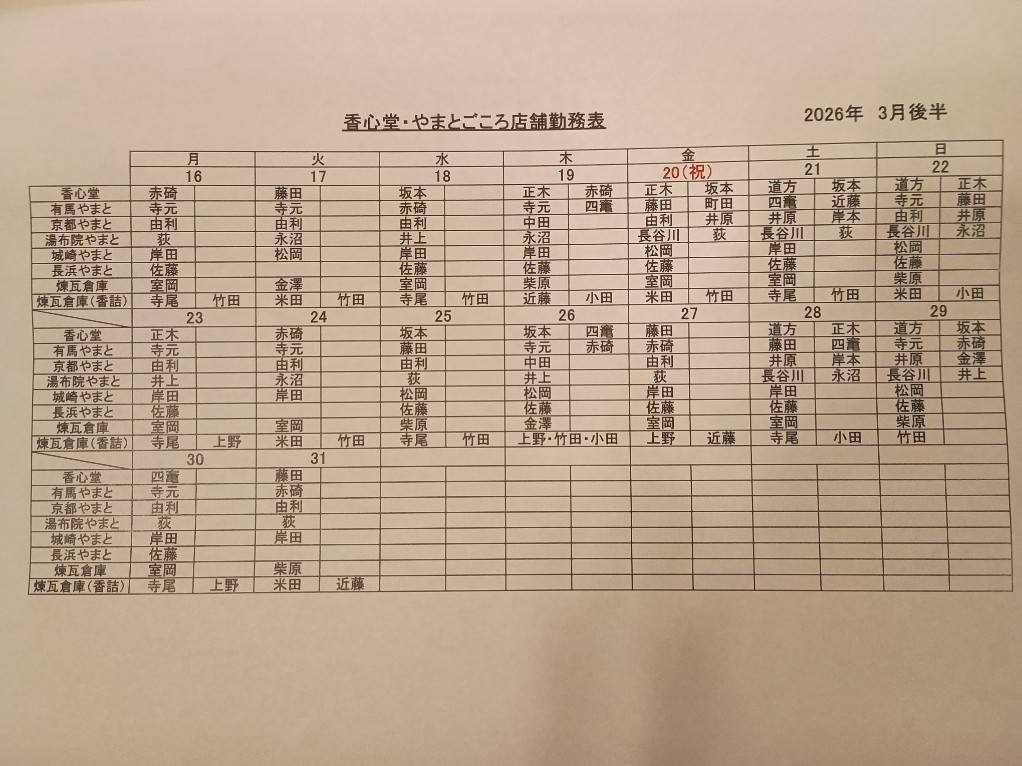 香心堂・やまとごころ店舗勤務表
2026年 3月後半
月 火 水 木 金 土 日
16 17 18 19 20(祝) 21 22
香心堂 赤碕 藤田 坂本 正木 赤碕 正木 坂本 道方 坂本 道方 正木
有馬やまと 寺元 寺元 赤碕 寺元 四竈 藤田 町田 四竈 近藤 寺元 藤田
京都やまと 由利 由利 由利 中田 由利 井原 井原 岸本 由利 井原
湯布院やまと 荻 永沼 井上 永沼 長谷川 荻 長谷川 荻 長谷川 永沼
城崎やまと 岸田 松岡 岸田 岸田 松岡 岸田 松岡
長浜やまと 佐藤 佐藤 佐藤 佐藤 佐藤 佐藤
煉瓦倉庫 室岡 金澤 室岡 柴原 室岡 室岡 柴原
煉瓦倉庫(香詰) 寺尾 竹田 米田 竹田 寺尾 竹田 近藤 小田 米田 竹田 寺尾 竹田 米田 小田
23 24 25 26 27 28 29
香心堂 正木 赤碕 坂本 坂本 四竈 藤田 道方 正木 道方 坂本
有馬やまと 寺元 寺元 藤田 寺元 赤碕 赤碕 藤田 四竈 寺元 赤碕
京都やまと 由利 由利 由利 中田 由利 井原 岸本 井原 金澤
湯布院やまと 井上 永沼 荻 井上 荻 長谷川 永沼 長谷川 井上
城崎やまと 岸田 岸田 松岡 松岡 岸田 岸田 松岡
長浜やまと 佐藤 佐藤 佐藤 佐藤 佐藤 佐藤
煉瓦倉庫 室岡 室岡 柴原 金澤 室岡 室岡 柴原
煉瓦倉庫(香詰) 寺尾 上野 米田 竹田 寺尾 竹田 上野・竹田・小田 上野 近藤 寺尾 小田 竹田
30 31
香心堂 四竈 藤田
有馬やまと 寺元 赤碕
京都やまと 由利 由利
湯布院やまと 荻 荻
城崎やまと 岸田 岸田
長浜やまと 佐藤
煉瓦倉庫 室岡 柴原
煉瓦倉庫(香詰) 寺尾 上野 米田 近藤